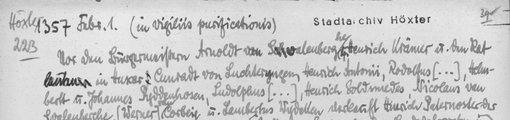 Höxter 1357 Febr. 1. (in vigiliis purificationis) Stadtarchiv Höxter
223 Vor den Bürgermeistern Arnoldt von Schwalenberg Henrich Krämer u. den Rat
in Huxer: Conradt von Luchteryngen, Henrich Antonii, Rodolfus [...], Helm-
bert u. Johannes Ryddenhosen, Ludolphus [...], Henrich Goltsmedes, Nicolaus van
(Werner) Corbeig u. Lambertus verkauft Hinrich Paternoster der